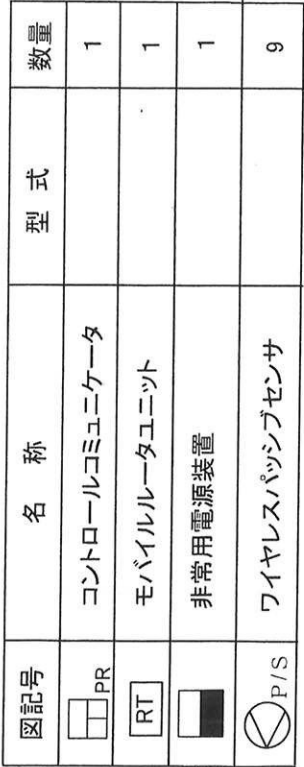 図記号 名称 型式 数量
PR コントロールコミュニケータ 1
RT モバイルルータユニット 1
非常用電源装置 1
P/S ワイヤレスパッシブセンサ 9